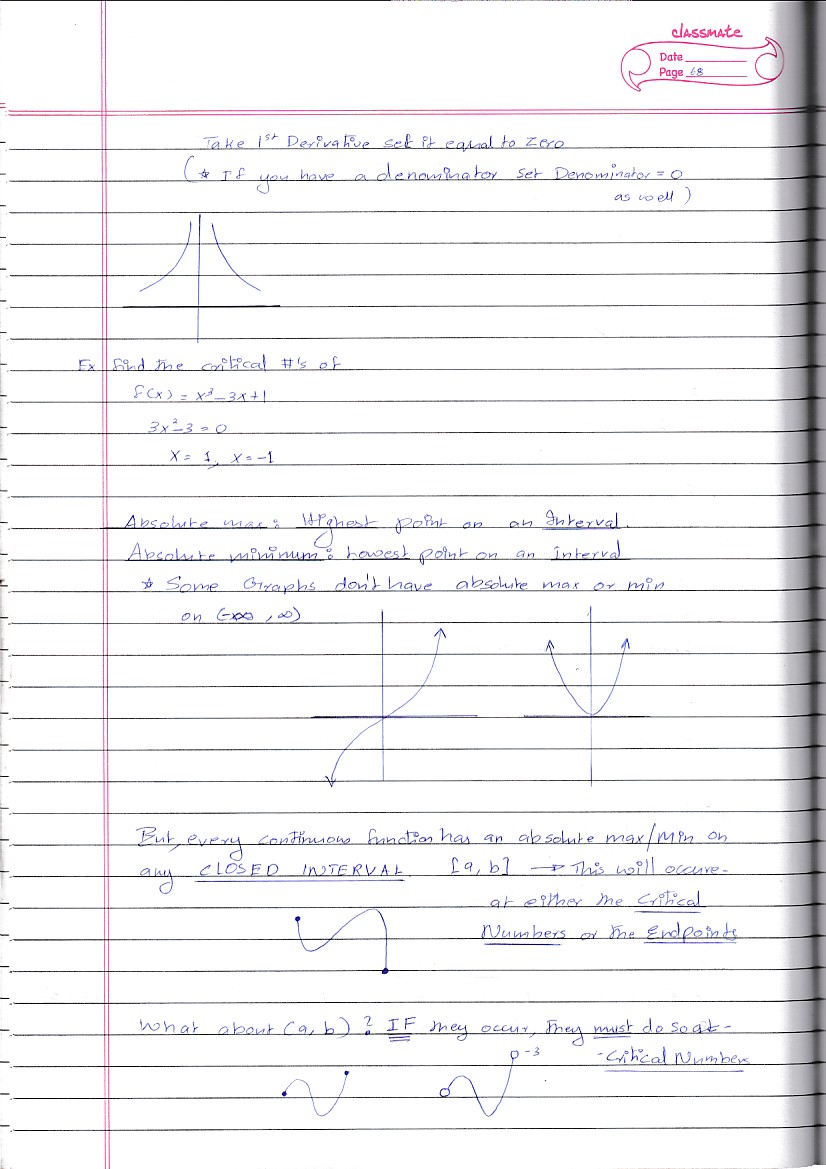 classmate
Date
Page 68
Take 1st Derivative set it equal to zero
(* If you have a denominator set Denominator = 0
as well)
Ex find the critical #'s of
f(x) = x³-3x+1
3x²-3=0
x = 1, x = -1
Absolute max: Highest point on an Interval.
Absolute mininum: Lowest point on an interval
* Some Graphs don't have absolute max or min
on (-∞, ∞)
But, every continuous function has an absolute max/min on
any CLOSED INTERVAL [a, b] → This will occure-
at either the Critical
Numbers or the Endpoints
What about (a, b) ? IF they occur, They must do so at-
-3
-Critical Numbers